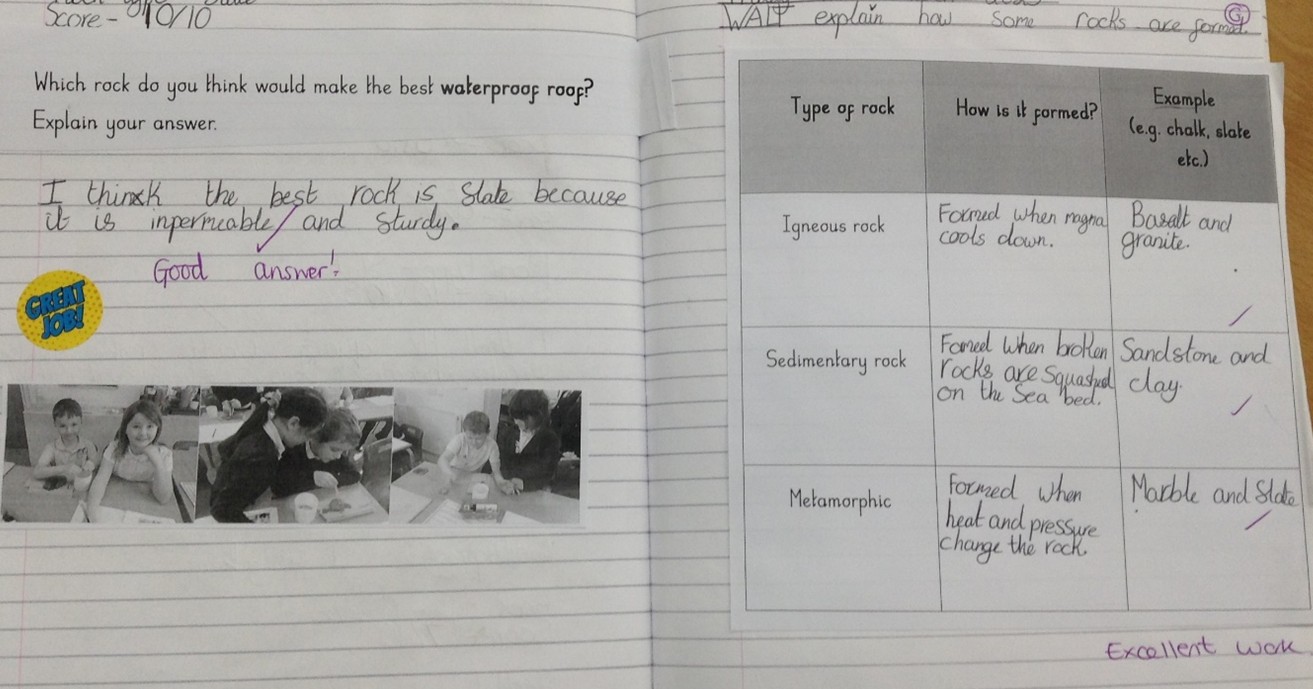 Score - 10/10
Which rock do you think would make the best waterproof roof?
Explain your answer.
I think the best rock is Slate because
it is inpermeable and sturdy.
Good answer!
GREAT
JOB!
WALT explain how some rocks are formed.
G
Type of rock
How is it formed?
Example
(e.g. chalk, slate
etc.)
Igneous rock
Formed when magna
cools down.
Basalt and
granite.
Sedimentary rock
Fomed when broken
rocks are squashed
on the Sea bed.
Sandstone and
clay.
Metamorphic
Formed when
heat and pressure
change the rock.
Marble and Slate
Excellent work